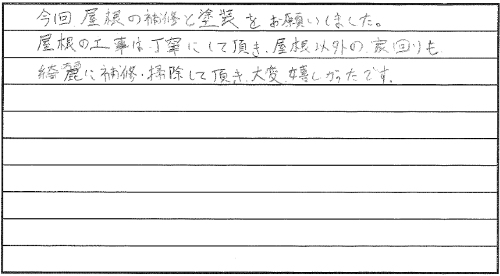 今回 屋根の補修と塗装をお願いしました。
屋根の工事は丁寧にして頂き、屋根以外の家回りも
綺麗に補修・掃除して頂き、大変嬉しかったです。